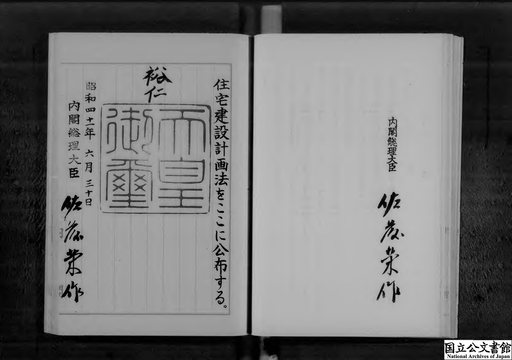 住宅建設計画法をここに公布する。
裕仁
天皇御璽
昭和四十一年六月三十日
内閣総理大臣 佐藤栄作
内閣総理大臣
佐藤栄作
国立公文書館
National Archives of Japan